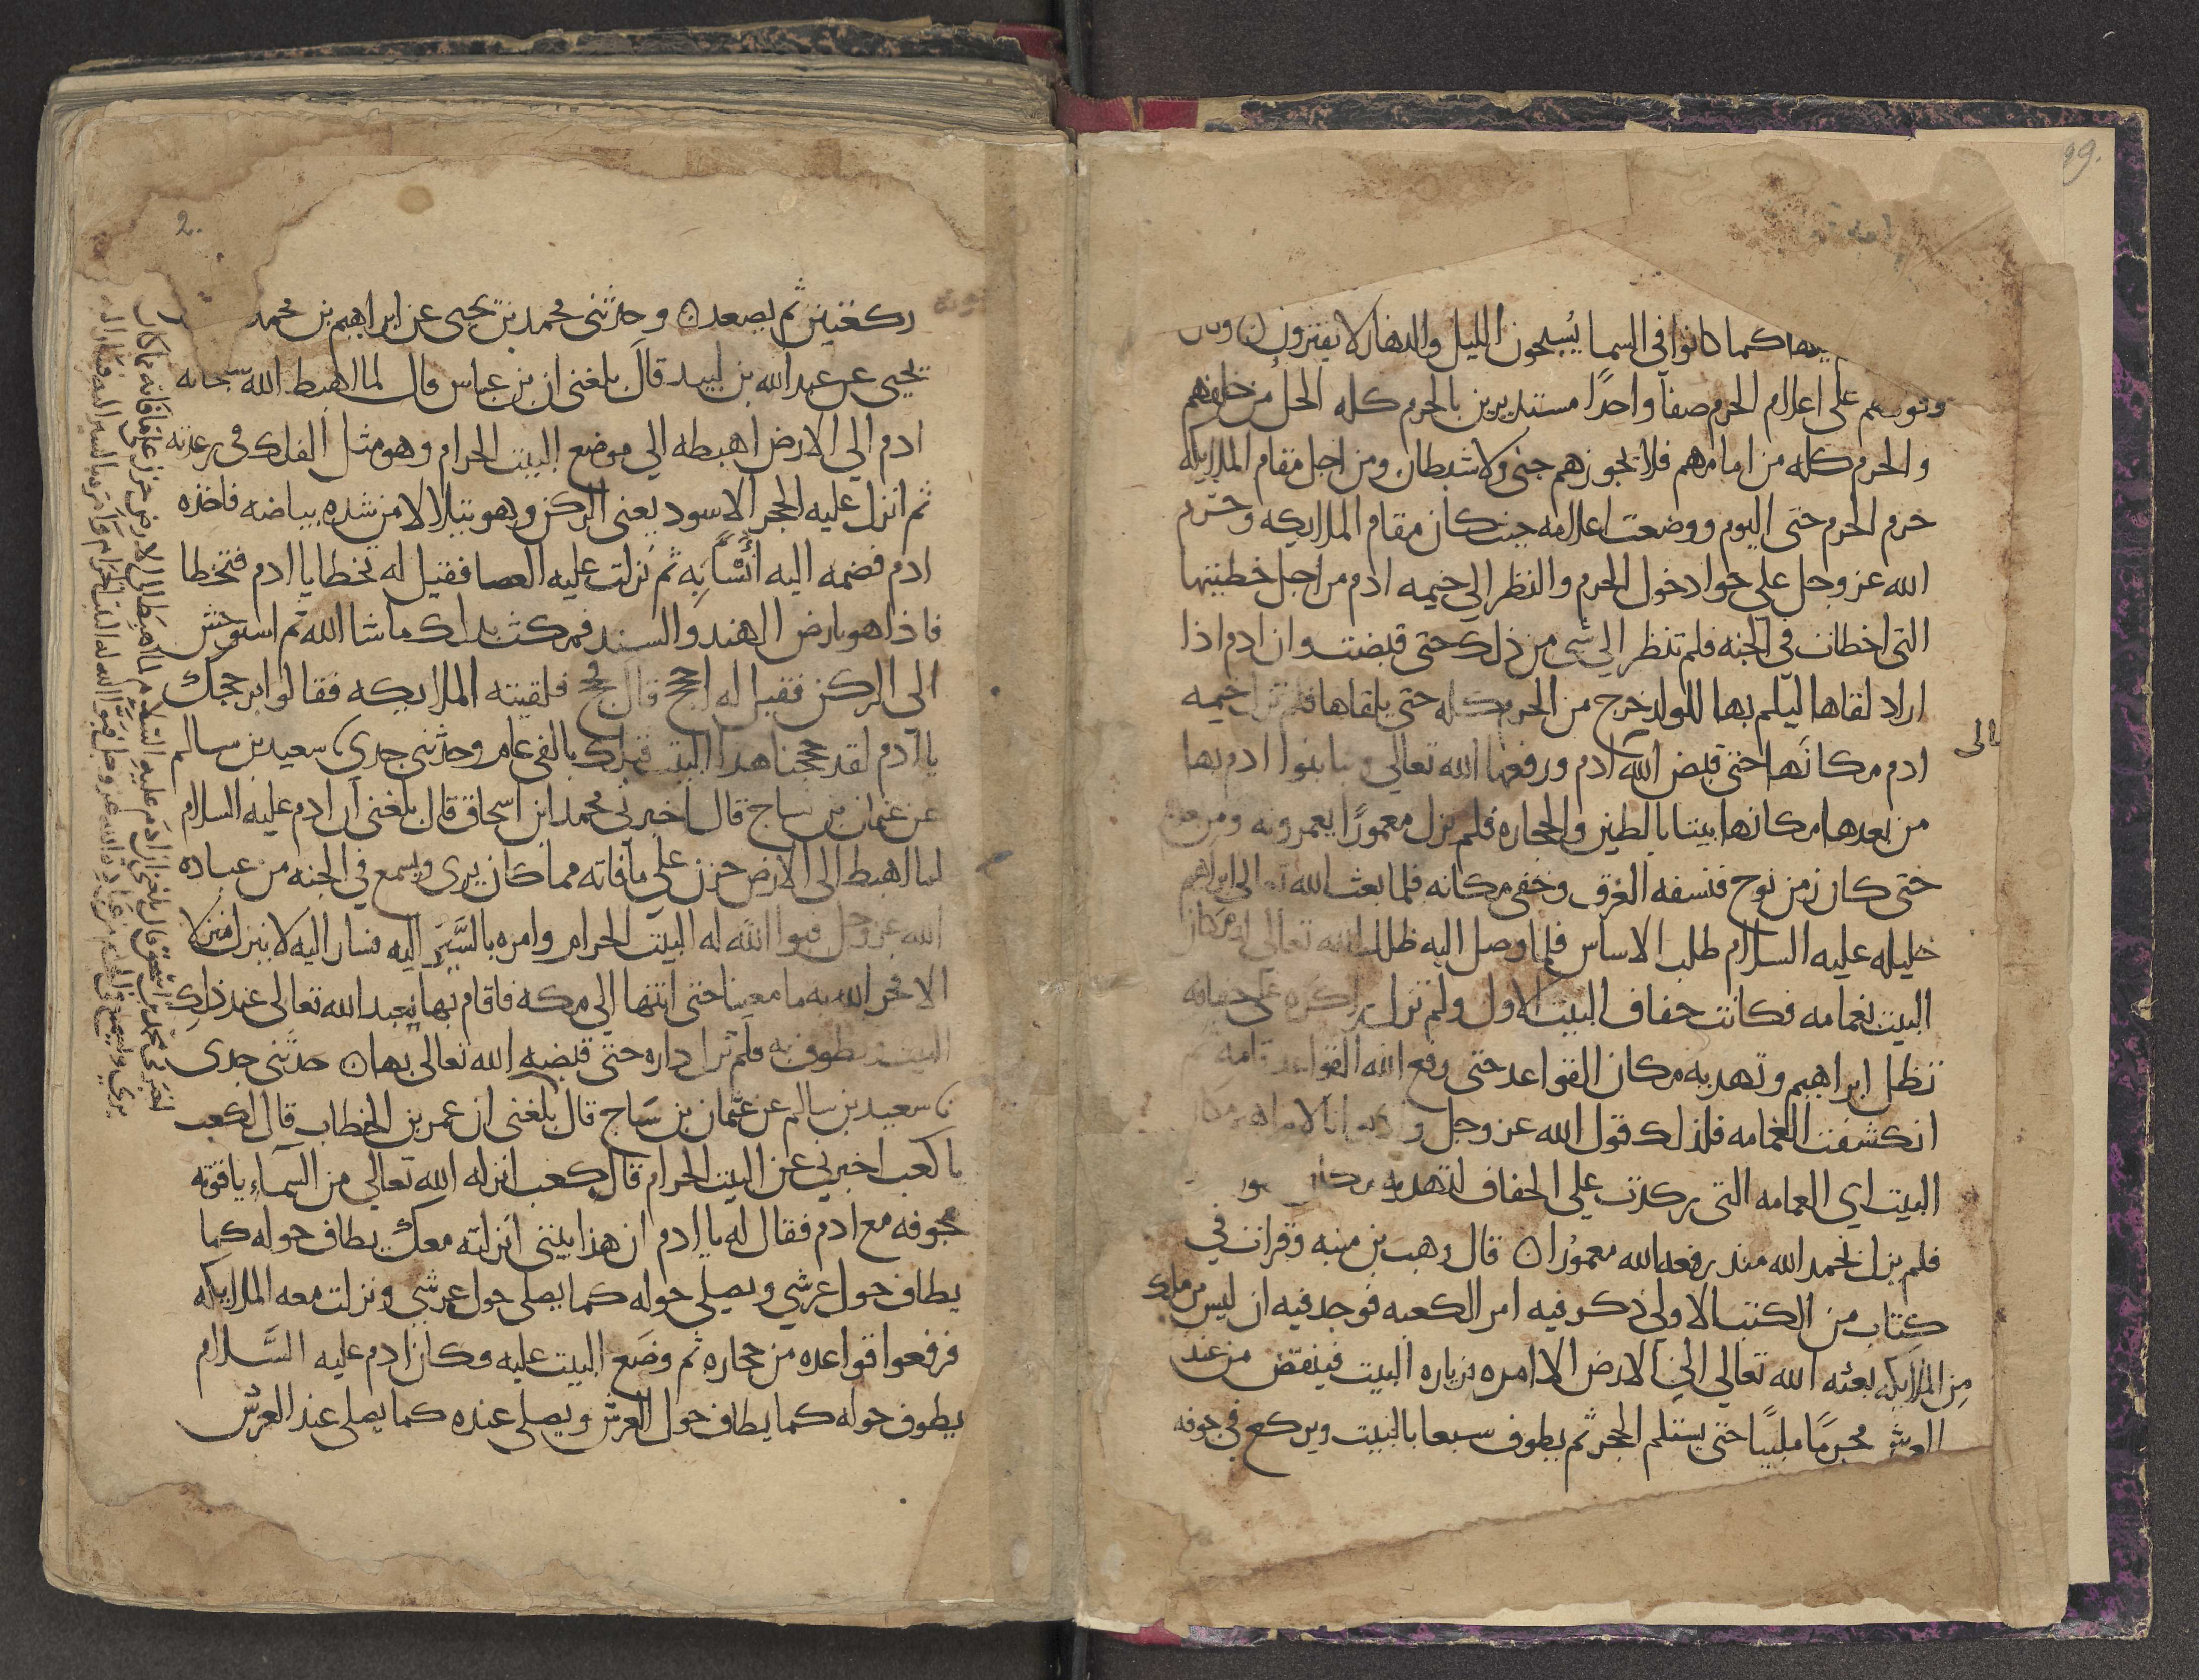 كما كانوا في السما يُسبحون الليل والنهار لا يفترون
على اعلام الحرم صفاً واحدًا مستديرين بالحرم كله الحلُ من خلفهم
والحرم كله من امامهم فلا يجوزهم جني ولا شيطان ومن اجل مقام الملايكه
حرم الحرم حتى اليوم ووضعت اعلامه حيث كان مقام الملايكه وحرّم
الله عز وجل على حوا دخول الحرم والنظر الي خيمه ادم من اجل خطيتها
التي اخطات في الجنه فلم تنظر الي شي من ذلك حتى قبضت وان ادم اذا
اراد لقاها ليلم بها للولد خرج من الحرم كله حتى يلقاها فلم تزل خيمه
ادم مكانَها حتى قبض الله ادم ورفعها الله تعالي بنوا ادم بها
من بعدها مكانها بيتا بالطين والحجاره فلم يزل معمورًا يعمرونه ومن
حتى كان زمن نوح فنسفه الغرق وخفي مكانه فلما بعث الله تعالى ابراهيم
خليله عليه السلام طلب الاساس فلما وصل اليه ظلل الله تعالى له مكان
البيت بغمامه فكانت حفاف البيت الاول ولم تزل راكزه على حفافه
تظل ابراهيم وتهديه مكان القواعد حتى رفع الله القواعد قامه ثم
انكشفت الغمامه فلذلك قول الله عز وجل واذ بوانا لابراهيم مكان
البيت اي الغمامه التي ركدت على الحفاف لتهديه مكان
فلم يزل بحمد الله منذ رفعه الله معمورًا ن قال وهب بن منبه وقرات في
كتاب من الكتب الاولى ذكر فيه امر الكعبه فوجد فيه ان ليس من ملك
مِن الملايكه بعثه الله تعالي الي الارض الا امره بزياره البيت فينقض من عند
العرش محرمًا ملبيًا حتى يستلم الحجر ثم يطوف سبعا بالبيت ويركع في جوفه
ركعتين ثم يصعد ن وحدثني محمد بن يحيى عن ابراهيم بن محمد
يحيى عن عبد الله بن لبيد قال بلغني ان بن عباس قال لما اهبط الله سبحانه
ادم الي الارض اهبطه الي موضع البيت الحرام وهو مثل الفلك في رعدته
ثم انزل عليه الحجر الاسود يعني الركن وهو يتلالا من شده بياضه فاخذه
ادم فضمه اليه اُنسًا بِه ثم نزلت عليه العصا فقيل له تخطا يا ادم فتخطا
فاذا هو بارض الهند والسند فمكث بذلك ماشا الله ثم استوحش
الى الركن فقيل له احجج قال فحج فلقيته الملايكه فقالوا بر حجك
يا ادم لقد حججنا هذا البيت قبلك بالفي عام وحدثني جدي نا سعيد بن سالم
عن عثمان بن ساج قال اخبرني محمد ابن اسحاق قال بلغني ان ادم عليه السلام
لما اهبط الى الارض حزن على ما فاته مما كان يرى ويسمع في الجنه من عباده
الله عز وجل فبوا الله له البيت الحرام وامره بالسَّيرِ اليه فسار اليه لا ينزل منزلا
الا فجر الله به ما معينا حتى انتها الي مكه فاقام بها يعبد الله تعالى عند ذلك
البيت ويطوف به فلم تزل داره حتى قبضه الله تعالى بها ن حدثني جدي
نا سعيد بن سالم عن عثمان بن سَاج قال بلغني ان عمر بن الخطاب قال لكعب
يا كعب اخبرني عن البيت الحرام قال كعب انزله الله تعالي من السماءِ ياقوته
مجوفه مع ادم فقال له يا ادم ان هذا بيتي انزلته معك يطاف حوله كما
يطاف حول عرشي ويصلى حوله كما يصلى حول عرشي ونزلت معه الملايكه
فرفعوا قواعده من حجاره ثم وضَع البيت عليه وكان ادم عليه السَّلام
يطوف حوله كما يطاف حول العرش ويصلى عنده كما يصلى عند العرش
الى
2.